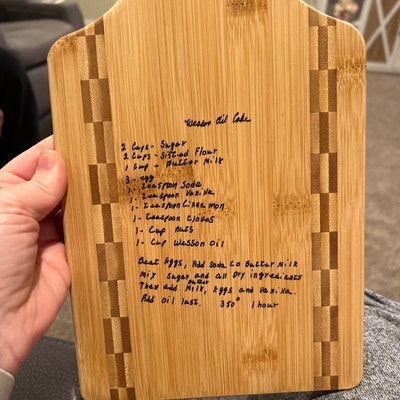 Wesson Oil Cake
2 Cups - Sugar
2 Cups - Sifted Flour
1 Cup - Butter Milk
3 - egg
1 - teaspoon Soda
1 - teaspoon Vanilla
1 - teaspoon Cinnamon
1 - teaspoon Cloves
1 - Cup Nuts
1 - Cup Wesson Oil
Beat Eggs, Add Soda to Butter Milk
Mix Sugar and all Dry ingredients
Butter
Then add Milk, Eggs and Vanilla.
Add Oil last. 350° 1 hour